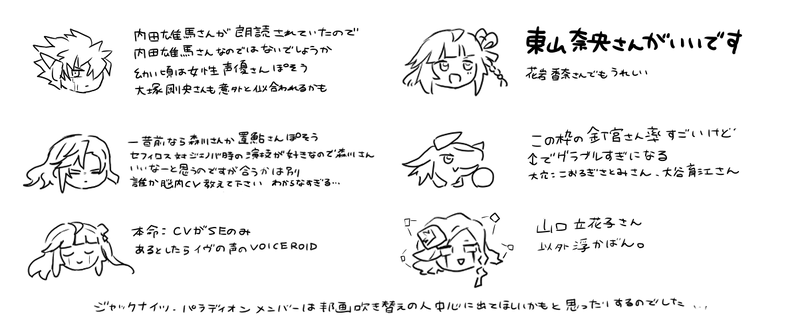 内田雄馬さんが朗読されていたので
内田雄馬さんなのではないでしょうか
幼い頃は女性声優さんぽそう
大塚剛央さんも意外と似合われるかも
東山奈央さんがいいです
花岩香奈さんでもうれしい
一昔前なら森川さんか置鮎さんぽそう
セフィロス対ジェノバ時の演技が好きなので森川さん
いいなーと思うのですが合うかは別
誰か脳内CV教えて下さい わからなすぎる…
この枠の釘宮さん率すごいけど
↑でグラブルすぎになる
大穴:こおろぎさとみさん、大谷育江さん
本命:CVがSEのみ
あるとしたらイヴの声のVOICEROID
山口立花子さん
以外浮かばん。
ジャックナイツ・パラディオンメンバーは邦画吹き替えの人中心に出てほしいかもと思ったりするのでした…